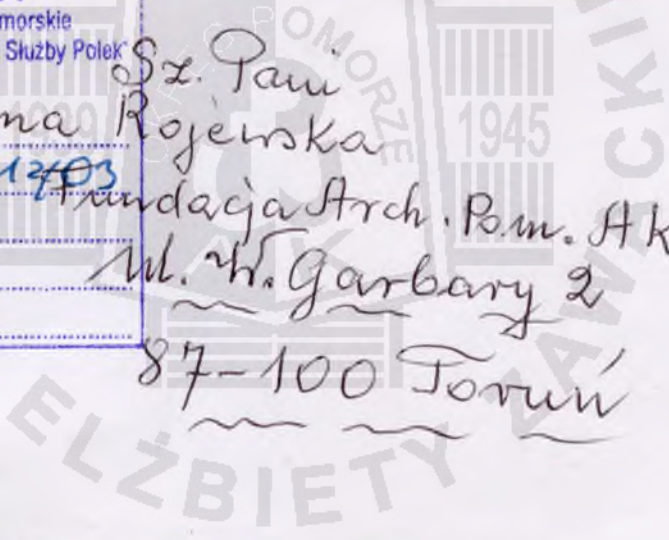 morskie
Służby Polek"
Sz. Pani
na Rojewska
Fundacja Arch. Pom. AK
Ul. W. Garbary 2
87-100 Toruń
1945
POMORZE
AK
ELŻBIETY ZAWACKIE